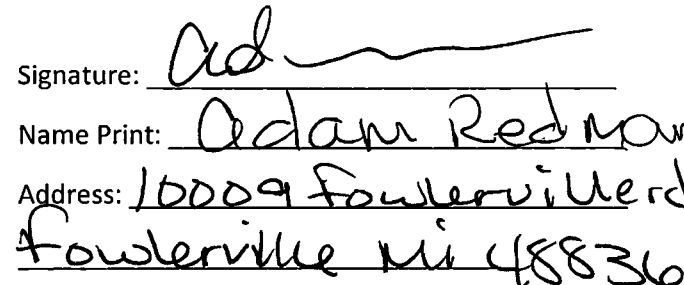 Signature: Ad
Name Print: Adam Redman
Address: 10009 Fowlerville rd
Fowlerville Mi 48836